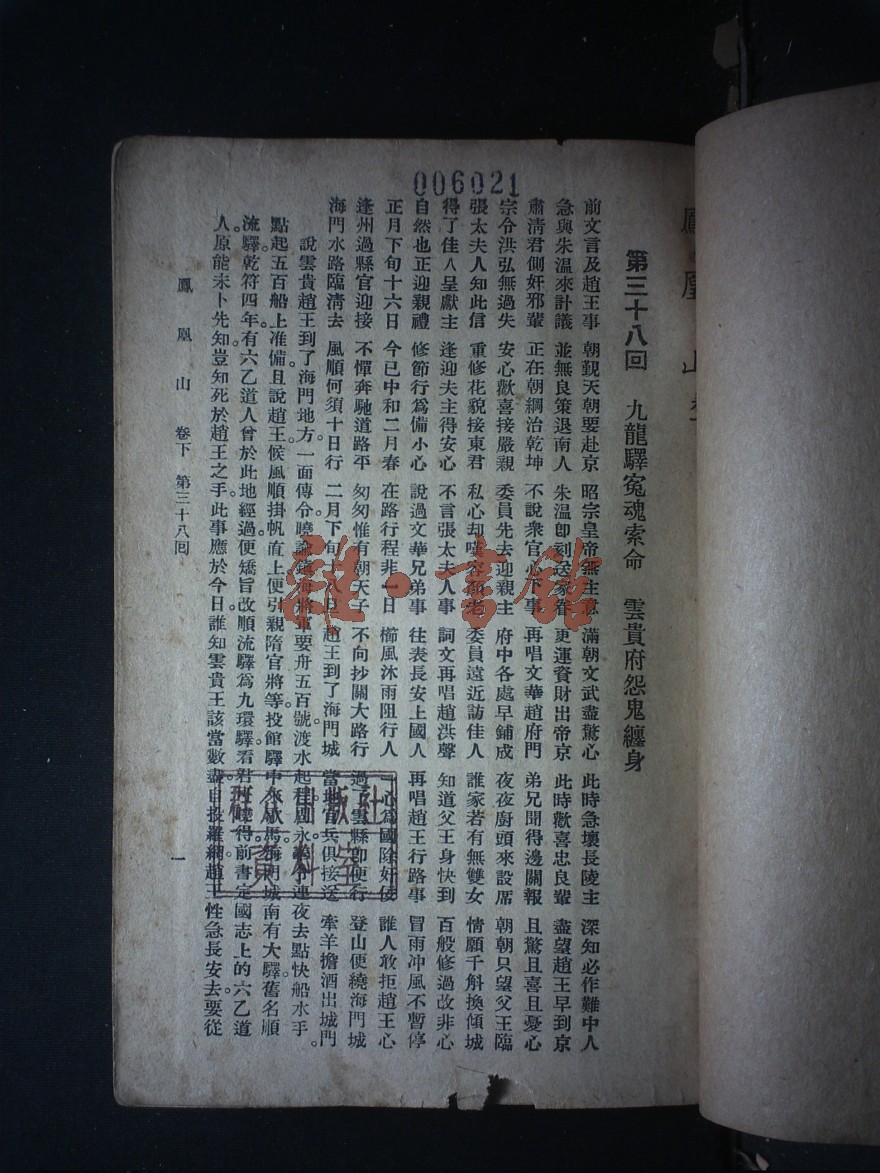 006021
第三十八回　九龍驛冤魂索命　雲貴府怨鬼纏身
前文言及趙王事　朝覲天朝要赴京　昭宗皇帝無主意　滿朝文武盡驚心　此時急壞長陵主　深知必作難中人
急與朱溫來計議　並無良策退南人　朱溫卽刻送家眷　更運資財出帝京　此時歡喜忠良輩　盡望趙王早到京
肅清君側奸邪輩　正在朝綱治乾坤　不說衆官心下事　再唱文華趙府門　弟兄聞得邊關報　且驚且喜且憂心
宗令洪弘無過失　安心歡喜接嚴親　委員先去迎親主　府中各處早鋪成　夜夜廚頭來設席　朝朝只望父王臨
張太夫人知此信　重修花貌接東君　私心却嘆容顏老　委員遠近訪佳人　誰家若有無雙女　情願千斛換傾城
得了佳人呈獻主　逢迎夫主得安心　不言張太夫人事　詞文再唱趙洪聲　知道父王身快到　百般修過改非心
自然也正迎親禮　修節行爲備小心　說過文華兄弟事　往表長安上國人　再唱趙王行路事　冒雨冲風不暫停
正月下旬十六日　今已中和二月春　在路行程非一日　櫛風沐雨阻行人　一心爲國除奸佞　誰人敢拒趙王心
逢州過縣官迎接　不憚奔馳道路平　匆匆惟有朝天子　不向抄關大路行　過了雲縣卽便行　登山便繞海門城
海門水路臨淸去　風順何須十日行　二月下旬十八日　趙王到了海門城　當地官兵俱接送　牽羊擔酒出城門
說雲貴趙王到了海門地方。一面傳令曉諭鎮海將軍要舟五百號。渡水起程。連夜去點快船水手。
點起五百船上准備。且說趙王候風順掛帆直上。便引親隋官將等。投館驛中海門城南有大驛舊名順
流驛。乾符四年。有六乙道人曾於此地經過。便矯旨改順流驛爲九環驛。看得前書定國志上的六乙道
人。原能未卜先知。豈知死於趙王之手。此事應於今日。誰知雲貴王該當數盡。自投羅網。趙王性急長安去。要從
鳳凰山　卷下　第三十八回　一
雜·書館